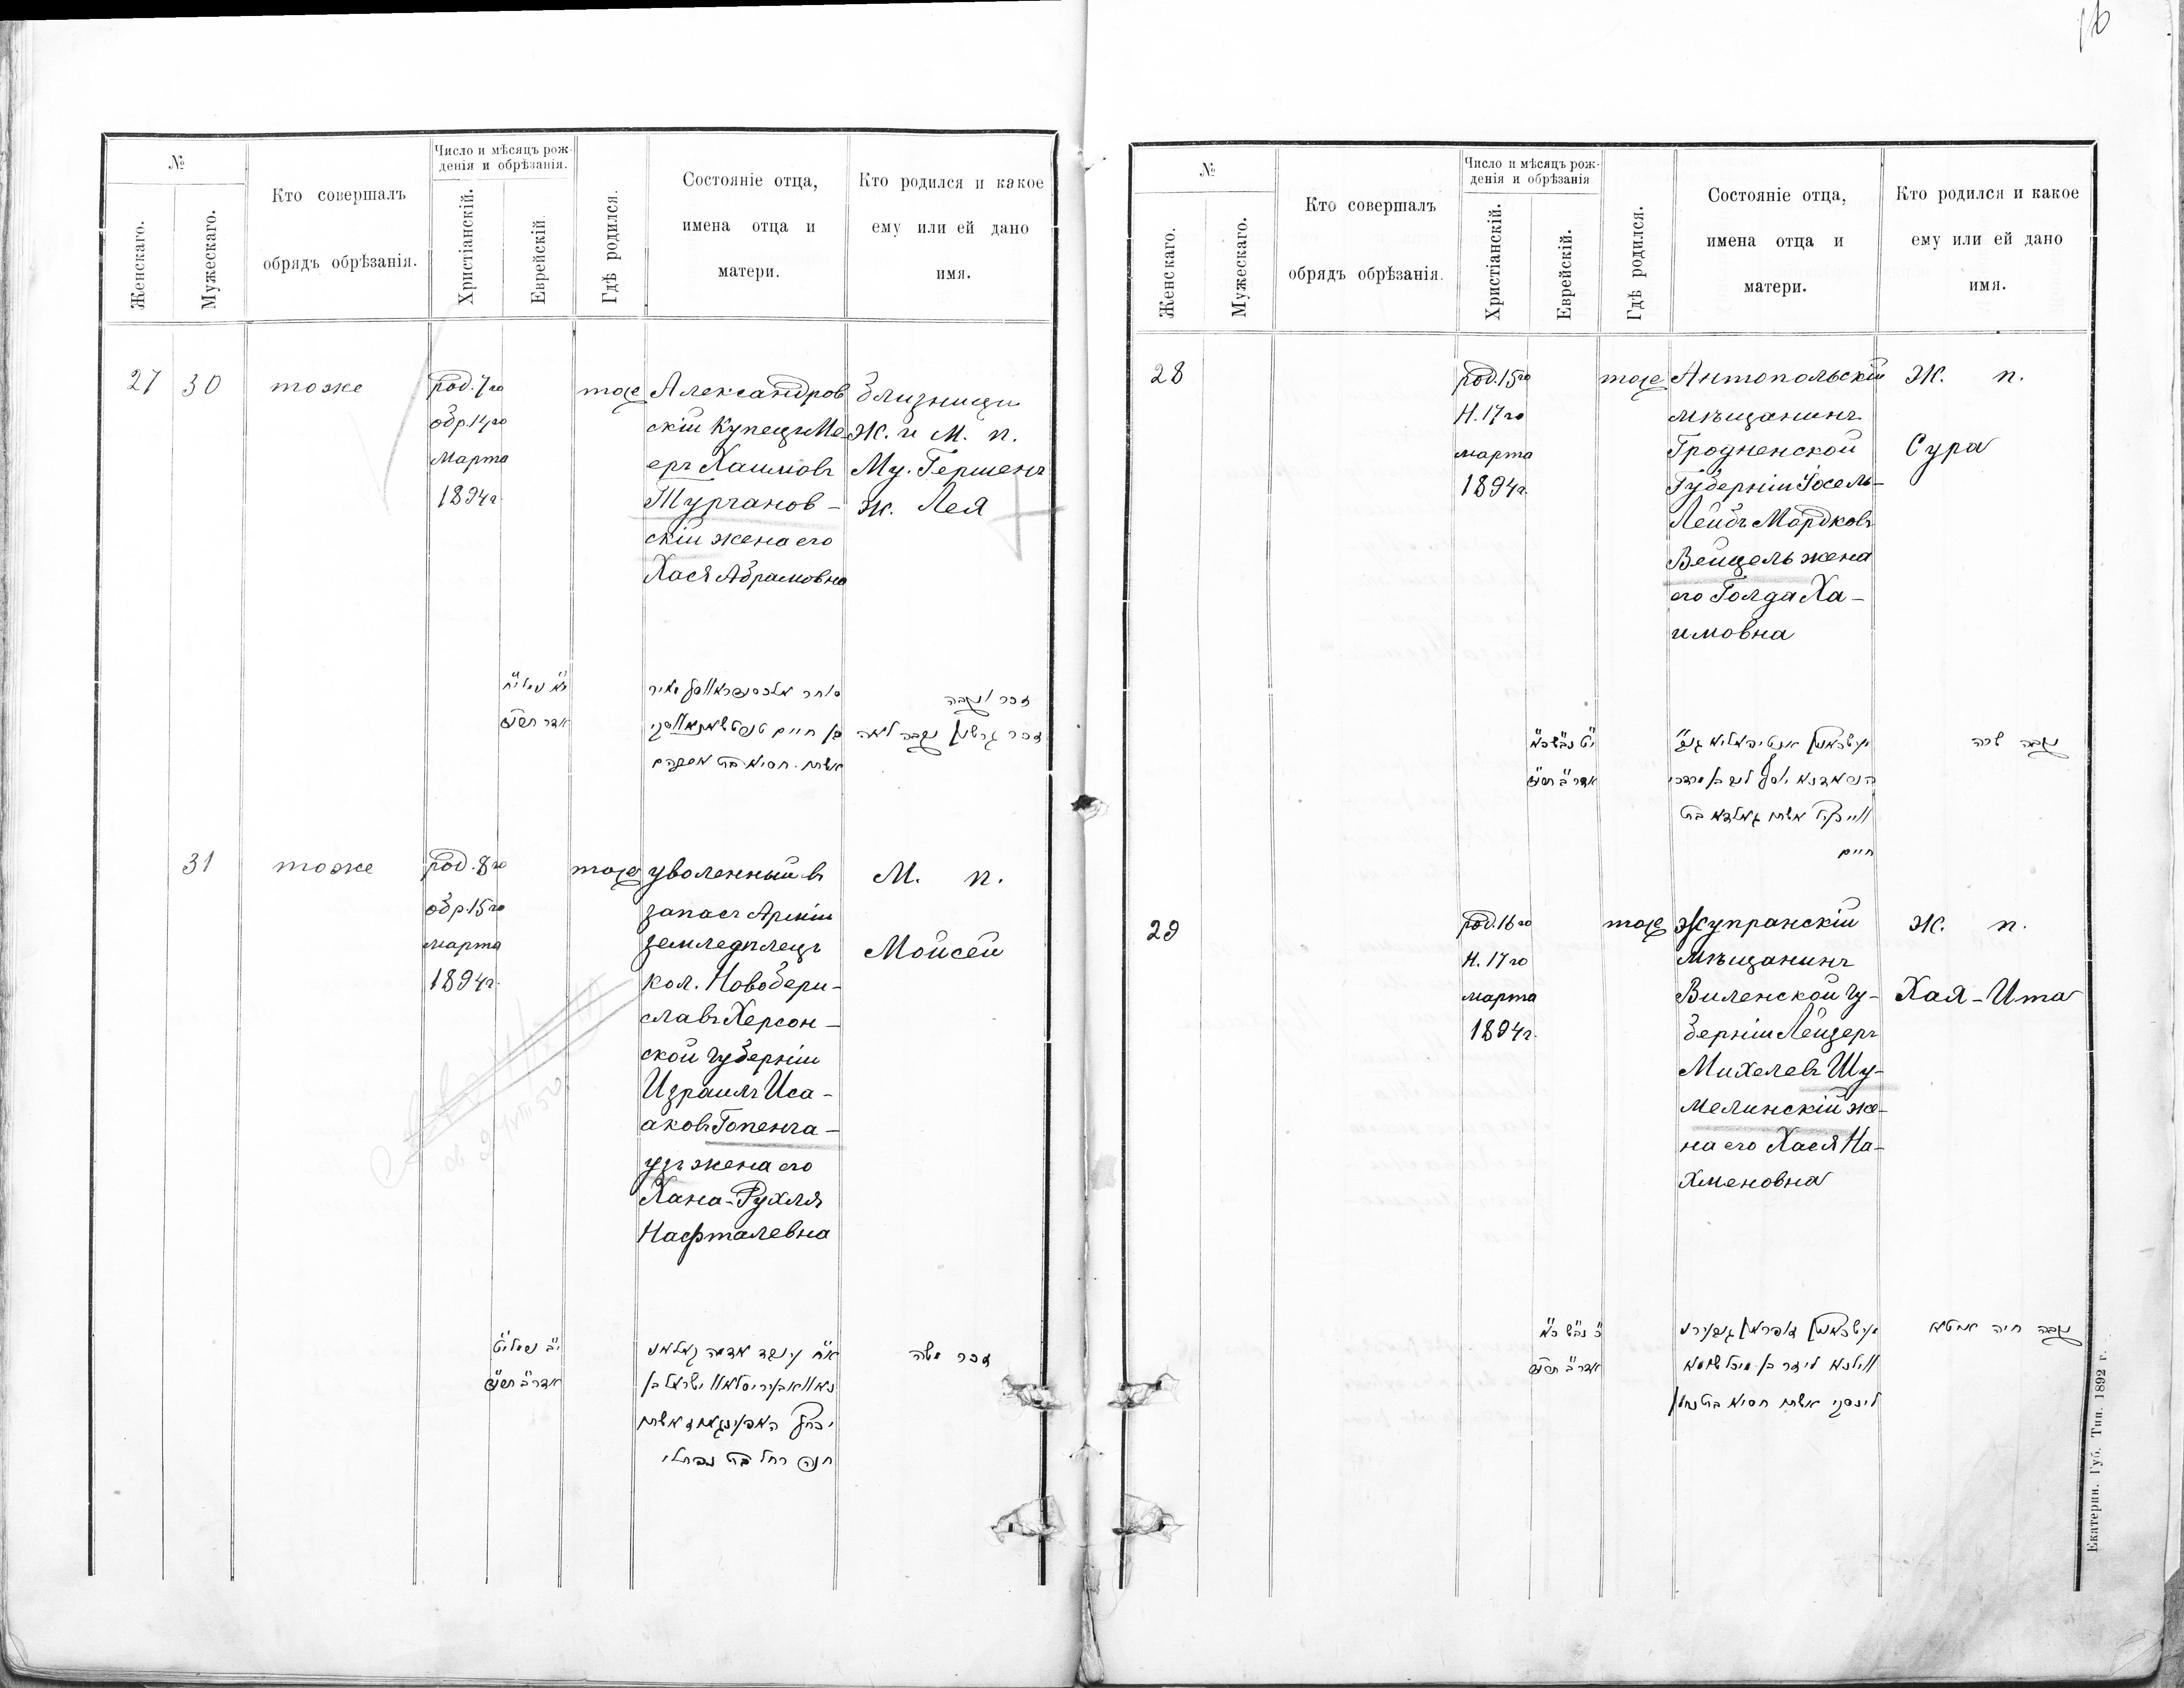 16
№
Женскаго.
Мужескаго.
Кто совершалъ
обрядъ обрѣзанія.
Число и мѣсяцъ рож-
денія и обрѣзанія.
Христіанскій.
Еврейскій
Гдѣ родился.
Состояніе отца,
имена отца и
матери.
Кто родился и какое
ему или ей дано
имя.
27 30 тоже
род. 7го
обр. 14го
Марта
1894г.
тоже
Александров
скій Купецъ Ме-
еръ Хаимовъ
Турчанов-
скій жена его
Хася Абрамовна
близнецы
Ж. и М. п.
Му. Гершенъ
ж. Лея
אדר
בן חיים
אשתו חסיא בת
זכר ונקבה
זכר גרשון נקבה לאה
31 тоже
род. 8го
обр. 15го
марта
1894г.
тоже
уволенный въ
запасъ Арміи
земледѣлецъ
кол. Новобери-
славъ Херсон-
ской губерніи
Израиль Иса-
аковъ Гопенга-
узъ жена его
Хана-Рухля
Нафталевна
М. п.
Мойсей
ישראל בן
חנה רחל בת נפתלי
זכר משה
№
Женскаго.
Мужескаго.
Кто совершалъ
обрядъ обрѣзанія.
Число и мѣсяцъ рож-
денія и обрѣзанія
Христіанскій.
Еврейскій.
Гдѣ родился.
Состояніе отца,
имена отца и
матери.
Кто родился и какое
ему или ей дано
имя.
28
род. 15го
Н. 17го
марта
1894г.
тоже
Антопольскій
мѣщанинъ
Гродненской
Губерніи Іосель-
Лейбъ Мордковъ
Вейцель жена
его Голда Ха-
имовна
Ж. п.
Сура
חיים
נקבה שרה
29
род. 16го
Н. 17го
марта
1894г.
тоже
Жупранскій
Мѣщанинъ
Виленской гу-
берніи Лейзеръ
Михелевъ Шу-
мелинскій же-
на его Хася На-
хменовна
Ж. п.
Хая-Ита
נקבה חיה איטא
Екатерин. Губ. Тип. 1892 г.